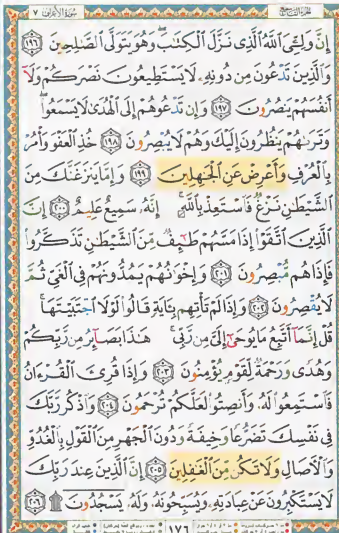 سُورَةُ الأَعْرَاف ٧
إِنَّ وَلِـِّۧيَ ٱللَّهُ ٱلَّذِى نَزَّلَ ٱلْكِتَـٰبَ ۖ وَهُوَ يَتَوَلَّى ٱلصَّـٰلِحِينَ ١٩٦
وَٱلَّذِينَ تَدْعُونَ مِن دُونِهِۦ لَا يَسْتَطِيعُونَ نَصْرَكُمْ وَلَآ
أَنفُسَهُمْ يَنصُرُونَ ١٩٧ وَإِن تَدْعُوهُمْ إِلَى ٱلْهُدَىٰ لَا يَسْمَعُوا۟ ۖ
وَتَرَىٰهُمْ يَنظُرُونَ إِلَيْكَ وَهُمْ لَا يُبْصِرُونَ ١٩٨ خُذِ ٱلْعَفْوَ وَأْمُرْ
بِٱلْعُرْفِ وَأَعْرِضْ عَنِ ٱلْجَـٰهِلِينَ ١٩٩ وَإِمَّا يَنزَغَنَّكَ مِنَ
ٱلشَّيْطَـٰنِ نَزْغٌ فَٱسْتَعِذْ بِٱللَّهِ ۚ إِنَّهُۥ سَمِيعٌ عَلِيمٌ ٢٠٠ إِنَّ
ٱلَّذِينَ ٱتَّقَوْا۟ إِذَا مَسَّهُمْ طَـٰٓئِفٌ مِّنَ ٱلشَّيْطَـٰنِ تَذَكَّرُوا۟
فَإِذَا هُم مُّبْصِرُونَ ٢٠١ وَإِخْوَٰنُهُمْ يَمُدُّونَهُمْ فِى ٱلْغَىِّ ثُمَّ
لَا يُقْصِرُونَ ٢٠٢ وَإِذَا لَمْ تَأْتِهِم بِـَٔايَةٍ قَالُوا۟ لَوْلَا ٱجْتَبَيْتَهَا ۚ
قُلْ إِنَّمَآ أَتَّبِعُ مَا يُوحَىٰٓ إِلَىَّ مِن رَّبِّى ۚ هَـٰذَا بَصَآئِرُ مِن رَّبِّكُمْ
وَهُدًى وَرَحْمَةٌ لِّقَوْمٍ يُؤْمِنُونَ ٢٠٣ وَإِذَا قُرِئَ ٱلْقُرْءَانُ
فَٱسْتَمِعُوا۟ لَهُۥ وَأَنصِتُوا۟ لَعَلَّكُمْ تُرْحَمُونَ ٢٠٤ وَٱذْكُر رَّبَّكَ
فِى نَفْسِكَ تَضَرُّعًا وَخِيفَةً وَدُونَ ٱلْجَهْرِ مِنَ ٱلْقَوْلِ بِٱلْغُدُوِّ
وَٱلْـَٔاصَالِ وَلَا تَكُن مِّنَ ٱلْغَـٰفِلِينَ ٢٠٥ إِنَّ ٱلَّذِينَ عِندَ رَبِّكَ
لَا يَسْتَكْبِرُونَ عَنْ عِبَادَتِهِۦ وَيُسَبِّحُونَهُۥ وَلَهُۥ يَسْجُدُونَ ۩ ٢٠٦
١٧٦